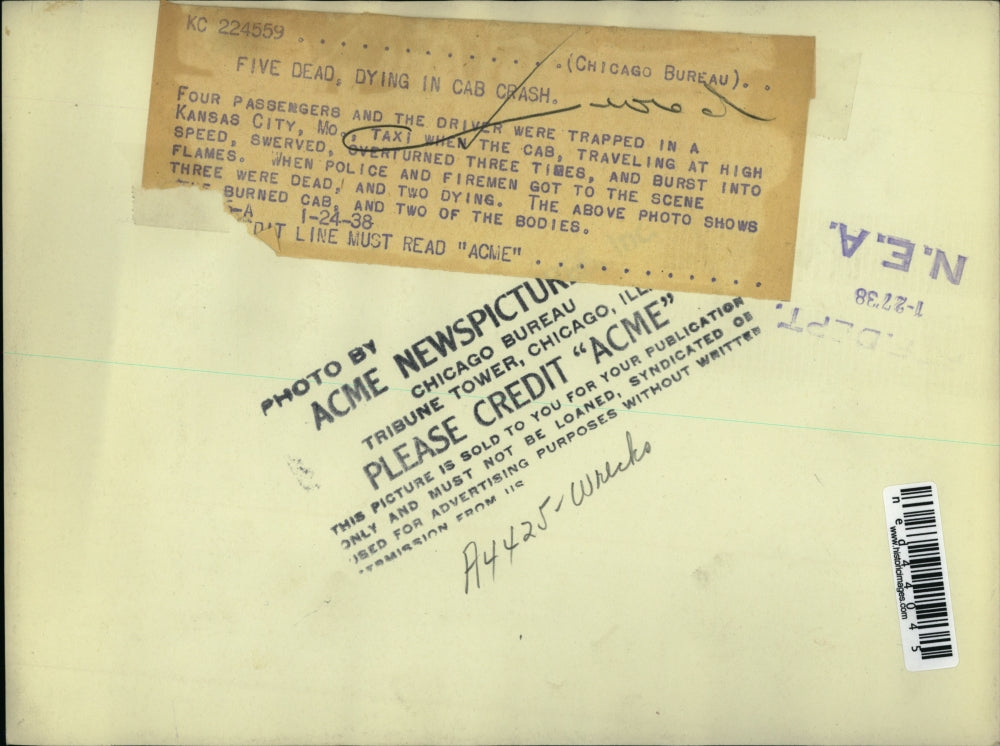 KC 224559 . . . . . . . . . . . . . (CHICAGO BUREAU). . .
FIVE DEAD, DYING IN CAB CRASH.
FOUR PASSENGERS AND THE DRIVER WERE TRAPPED IN A
KANSAS CITY, MO., TAXI WHEN THE CAB, TRAVELING AT HIGH
SPEED, SWERVED, OVERTURNED THREE TIMES, AND BURST INTO
FLAMES. WHEN POLICE AND FIREMEN GOT TO THE SCENE
THREE WERE DEAD, AND TWO DYING. THE ABOVE PHOTO SHOWS
BURNED CAB, AND TWO OF THE BODIES.
-A 1-24-38
LINE MUST READ "ACME" . . . . . . . . . . .
N.E.A.
1-27'38
DEPT.
PHOTO BY
ACME NEWSPICTUR
CHICAGO BUREAU
TRIBUNE TOWER, CHICAGO, ILL
PLEASE CREDIT "ACME"
THIS PICTURE IS SOLD TO YOU FOR YOUR PUBLICATION
ONLY AND MUST NOT BE LOANED, SYNDICATED OR
USED FOR ADVERTISING PURPOSES WITHOUT WRITTEN
PERMISSION FROM US
A4425-Wrecks
ned44045
www.historicimages.com